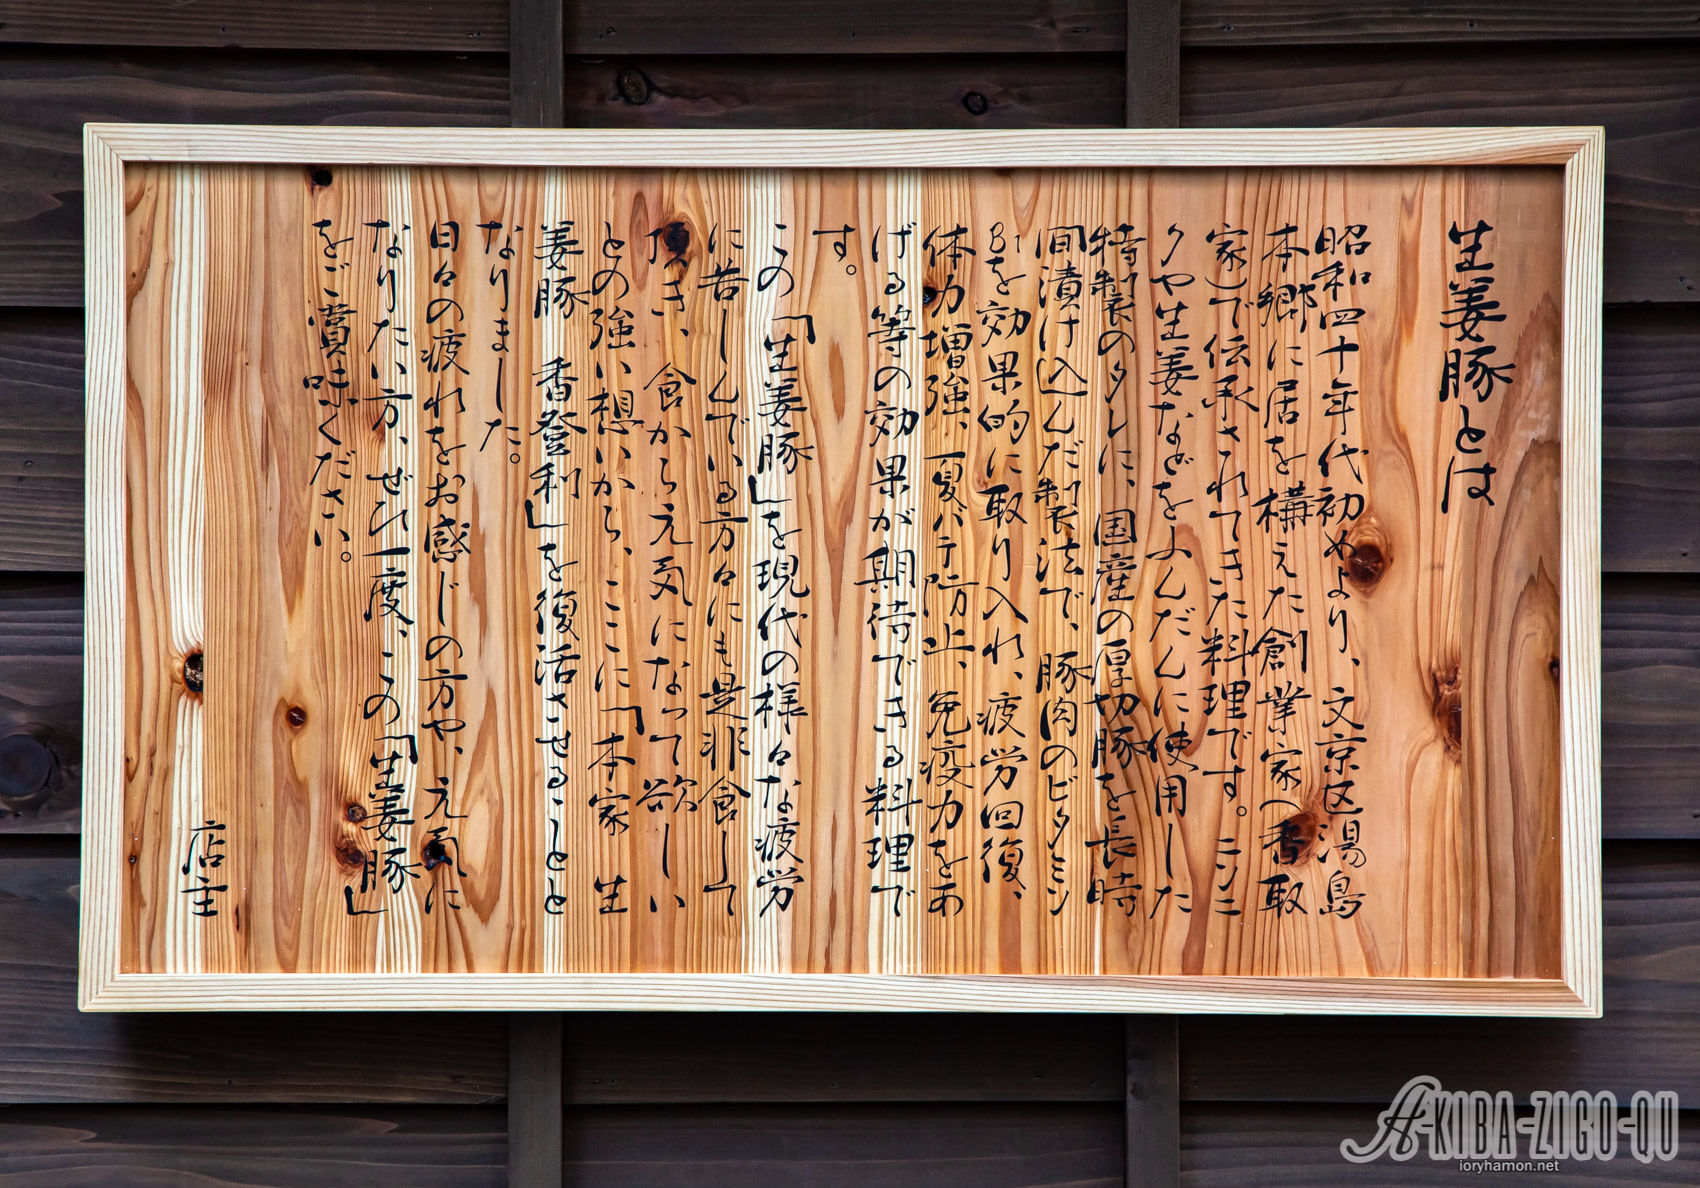 生姜豚とは
昭和四十年代初めより、文京区湯島
本郷に居を構えた創業家(香取
家)で伝承されてきた料理です。ニンニ
クや生姜などをふんだんに使用した
特製のタレに、国産の厚切豚を長時
間漬け込んだ製法で、豚肉のビタミン
B1を効果的に取り入れ、疲労回復、
体力増強、夏バテ防止、免疫力をあ
げる等の効果が期待できる料理で
す。
この「生姜豚」を現代の様々な疲労
に苦しんでいる方々にも是非食して
頂き、食から元気になって欲しい
との強い想いから、ここに「本家 生
姜豚 香登利」を復活させることと
なりました。
日々の疲れをお感じの方や、元気に
なりたい方、ぜひ一度、この「生姜豚」
をご賞味ください。
店主
AKIBA-ZIGO-QU
ioryhamon.net